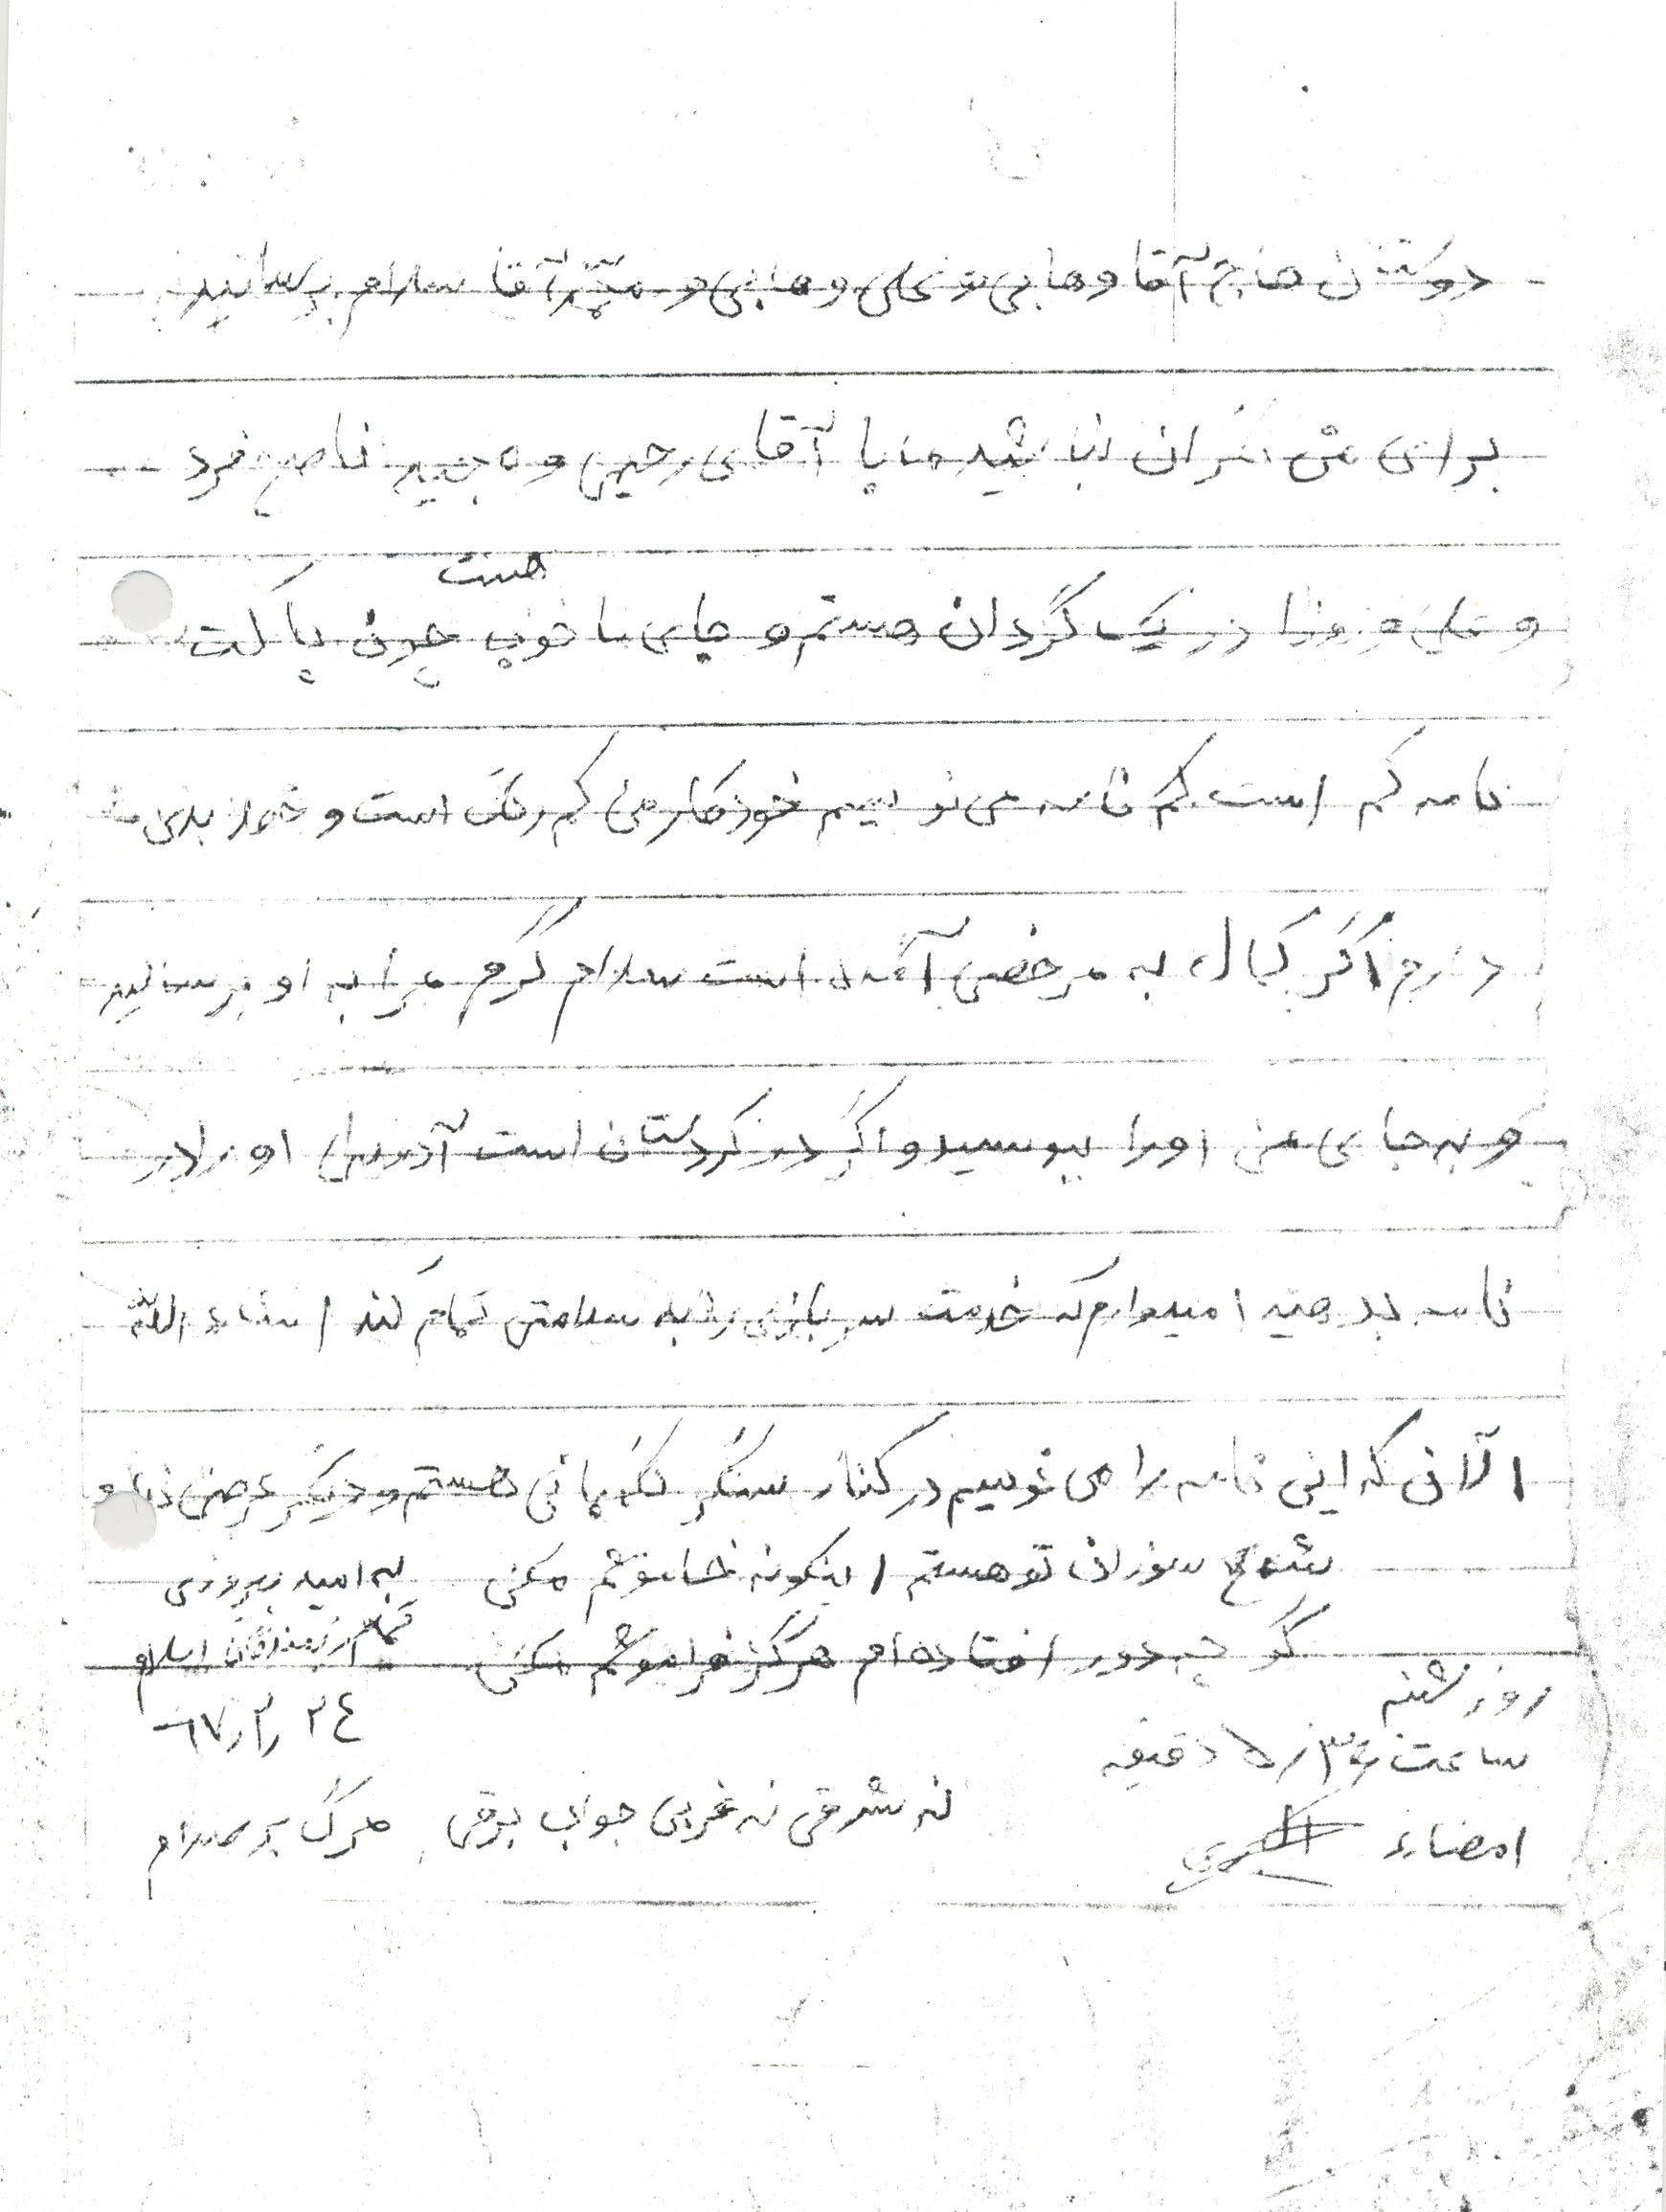 دوستان حاج آقا وهابی و علی وهابی و محمد آقا سلام برسانید
برای من نگران نباشید ما با آقای رحیمی و مجید ناصح فرد
و علی در یک گردان هستم و جای ما خوب هست چون پاکت
نامه کم است کم نامه می نویسم خودکار من کم رنگ است و خط بدی
دارم اگر کمال به مرخصی آمده است سلام گرم مرا به او برسانید
و به جای من او را ببوسید و اگر در کردستان است آدرس او را در
نامه بدهید امیدوارم که خدمت سربازی را به سلامتی تمام کند انشاء الله
الآن که این نامه را می نویسم در کنار سنگر نگهبانی هستم و دیگر عرضی ندارم
شمع سوزان تو هستم اینگونه خاموشم مکن به امید پیروزی
گر چه دور افتاده ام هرگز فراموشم مکن تمام رزمندگان اسلام
روز شنبه
۶۷
ساعت دقیقه
نه شرقی نه غربی مرگ بر صدام
امضاء